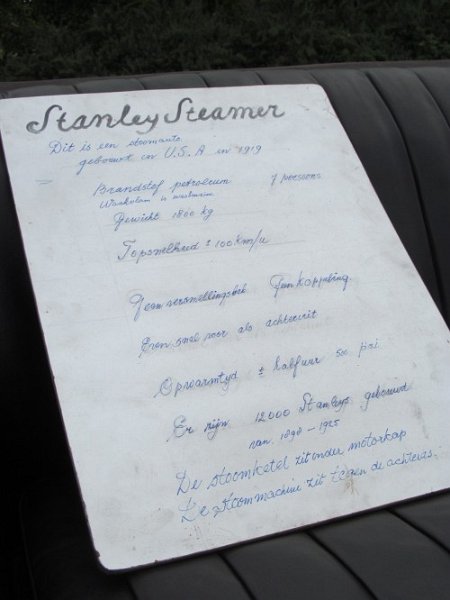 Stanley Steamer
Dit is een stoomauto
gebouwt in U.S.A in 1919
Brandstof petroleum 7 persoons
Waakvlam is wasbenzine
Gewicht 1800 kg
Topsnelheid ± 100 km/u
Geen versnellingsbak Geen koppeling
Even snel voor als achteruit
Opwarmtyd ± half uur 500 psi
Er zijn 12000 Stanleys gebouwd
van 1898 - 1925
De stoomketel zit onder motorkap
De stoommachine zit tegen de achteras.